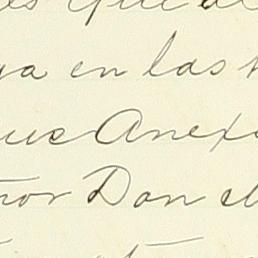 que
ya en las
que Anex
ñor Don el